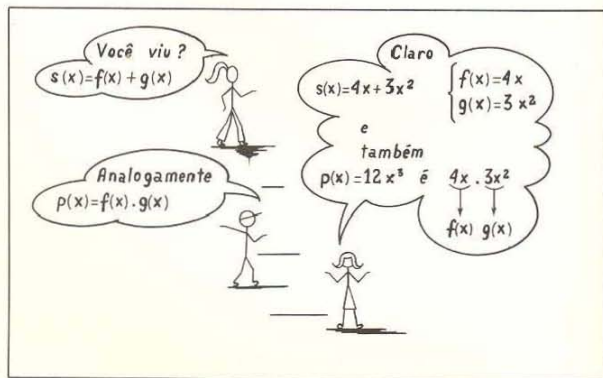 Você viu?
s(x)=f(x)+g(x)
Analogamente
p(x)=f(x).g(x)
Claro
s(x)=4x+3x²
f(x)=4x
g(x)=3x²
e
também
p(x)=12x³ é 4x . 3x²
f(x) g(x)